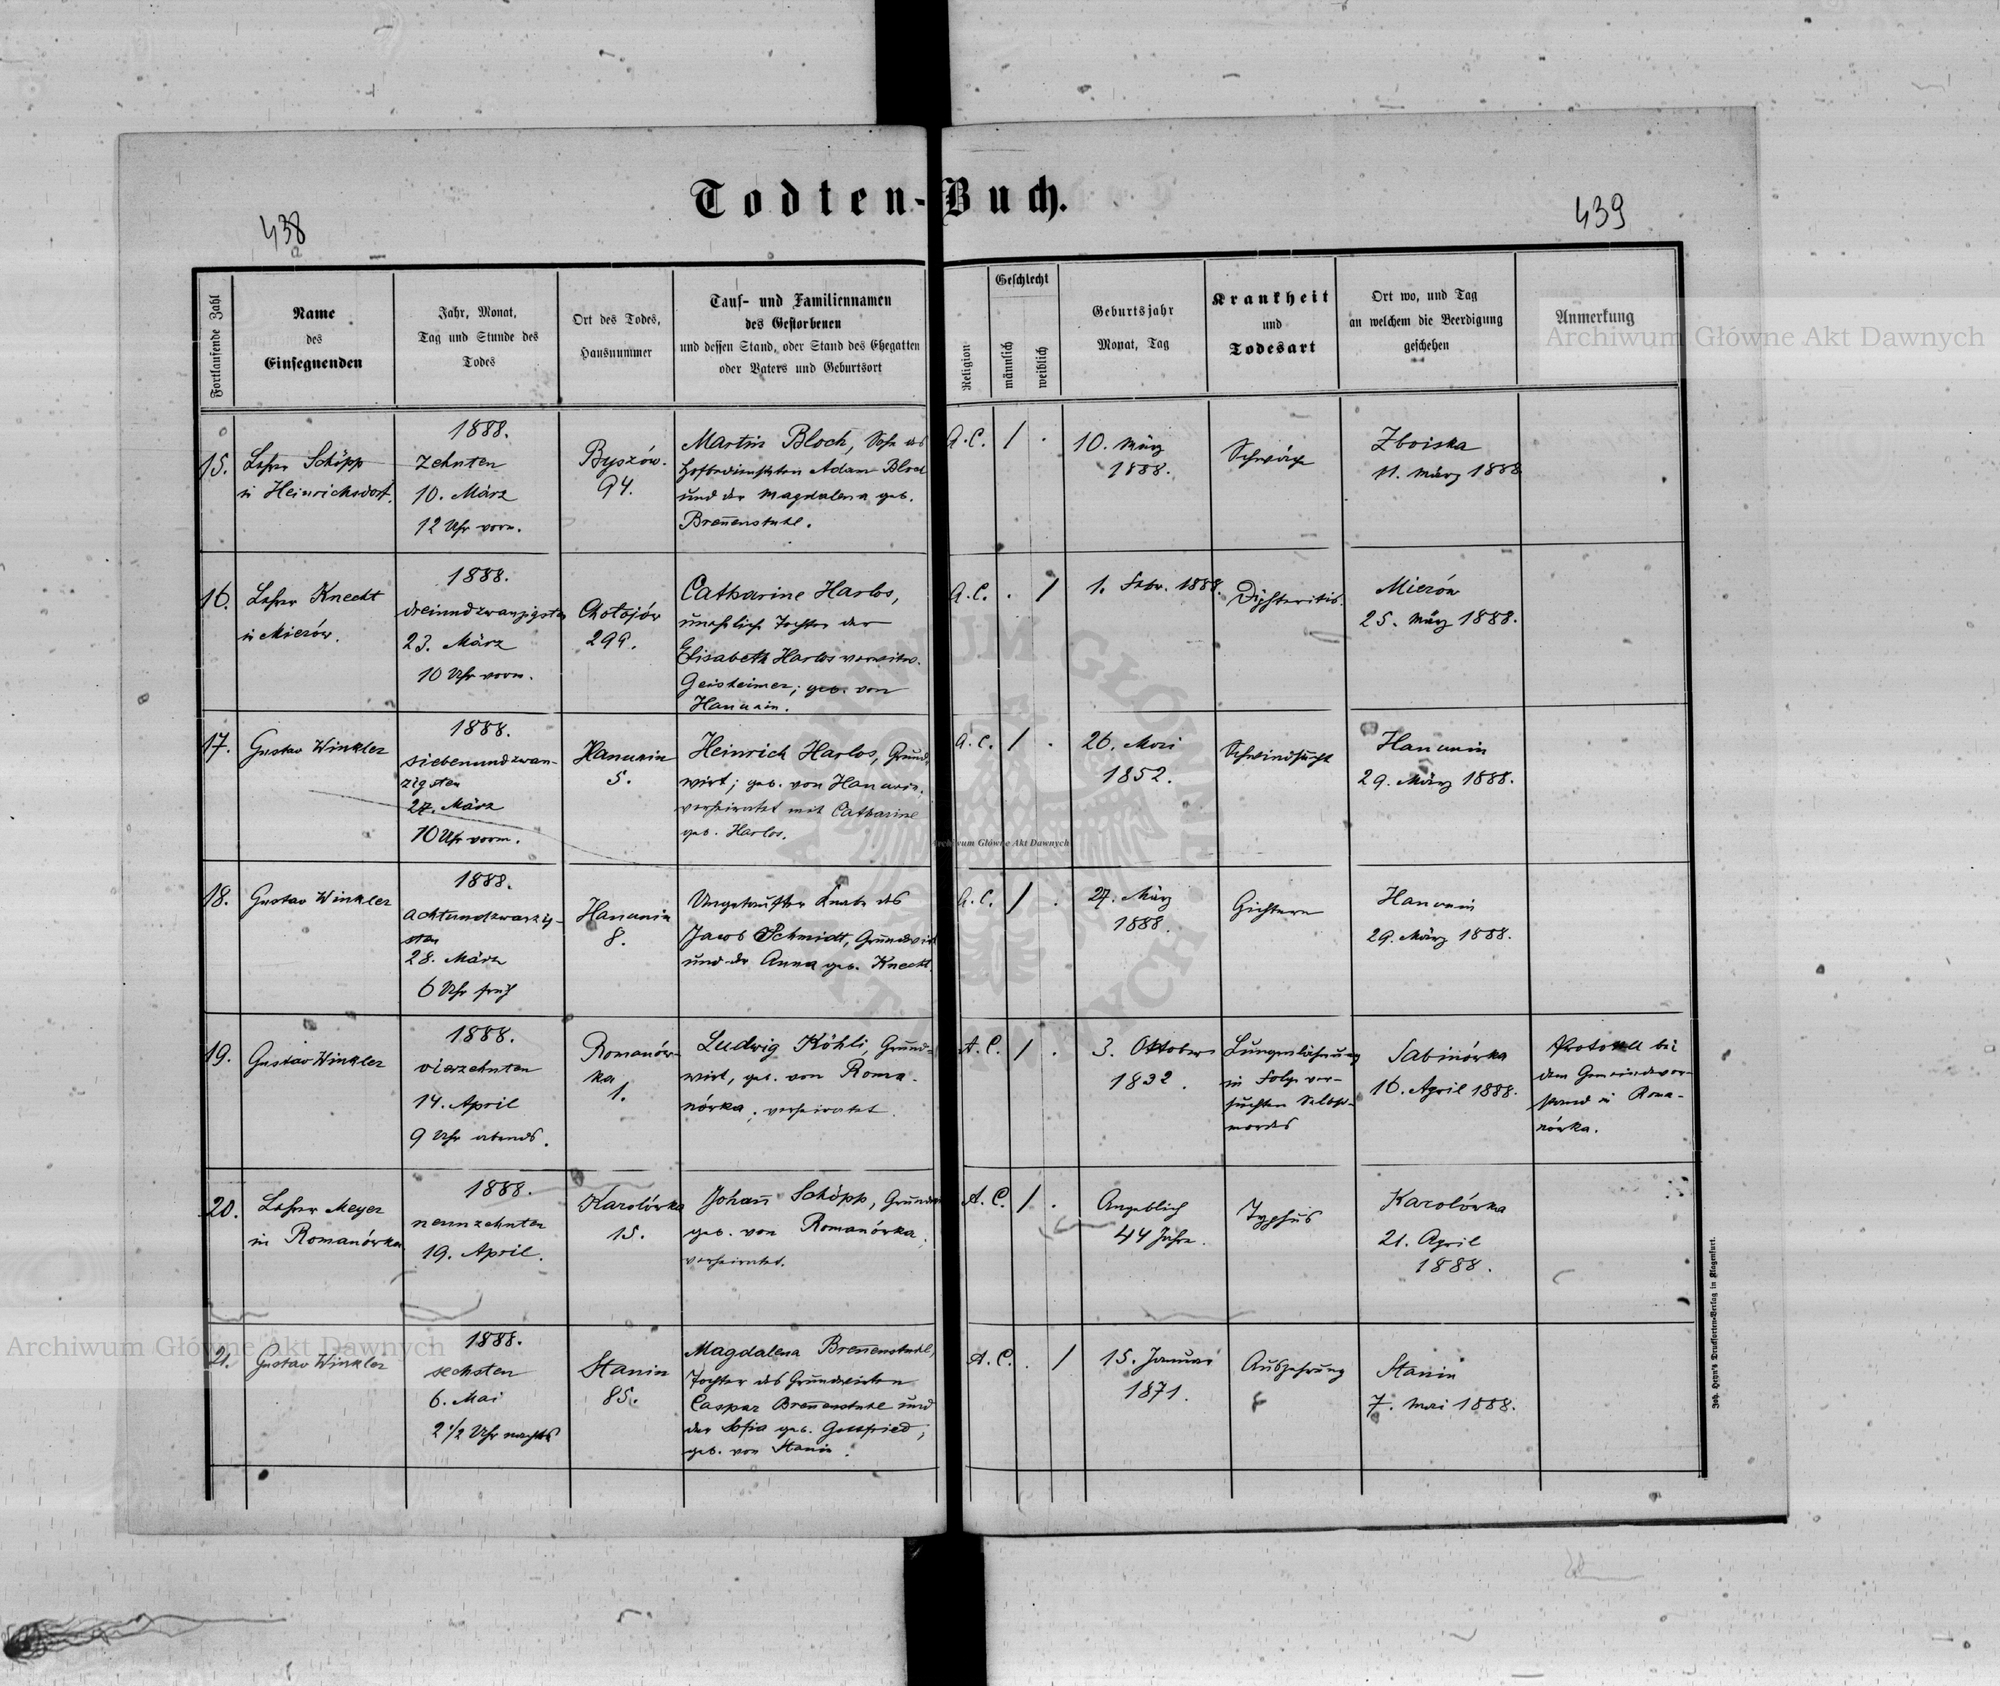 Todten-Buch.
438
439
Fortlaufende Zahl
Name
des
Einsegnenden
Jahr, Monat,
Tag und Stunde des
Todes
Ort des Todes,
Hausnummer
Tauf- und Familiennamen
des Gestorbenen
und dessen Stand, oder Stand des Ehegatten
oder Vaters und Geburtsort
Religion
Geschlecht
männlich
weiblich
Geburtsjahr
Monat, Tag
Krankheit
und
Todesart
Ort wo, und Tag
an welchem die Beerdigung
geschehen
Anmerkung
15.
Lehrer Schöpp
in Heinrichsdorf.
1888.
zehnten
10. März
12 Uhr vorm.
Byszów.
94.
Martin Bloch, Sohn des
Hofbediensteten Adam Bloch
und der Magdalena geb.
Breñenstuhl.
A.C.
/ .
10. März
1888.
Schwäche
Zboiska
11. März 1888
16.
Lehrer Knecht
in Mierów.
1888.
dreiundzwanzigsten
23. März
10 Uhr vorm.
Chołojów
299.
Catharine Harlos,
unehliche Tochter der
Elisabeth Harlos verwitw.
Geisheimer; geb. von
Hanunin.
A.C.
. /
1. Febr. 1888.
Diphteritis.
Mierów
25. März 1888.
17.
Gustav Winkler
1888.
siebenundzwan-
zigsten
27. März
10 Uhr vorm.
Hanunin
5.
Heinrich Harlos, Grund-
wirt; geb. von Hanunin,
verheiratet mit Catharine
geb. Harlos.
A.C.
/ .
26. Mai
1852.
Schwindsucht
Hanunin
29. März 1888.
18.
Gustav Winkler
1888.
achtundzwanzig-
sten
28. März
6 Uhr früh
Hanunin
8.
Ungetaufter Knabe des
Jacob Schmidt, Grundwirt
und der Anna geb. Knecht.
A.C.
/ .
27. März
1888.
Gichtern
Hanunin
29. März 1888.
19.
Gustav Winkler
1888.
vierzehnten
14. April
9 Uhr abends.
Romanów-
ka
1.
Ludwig Köhli, Grund-
wirt, geb. von Roma-
nówka; verheiratet.
A.C.
/ .
3. Oktober
1832.
Lungenlähmung
in Folge ver-
suchten Selbst-
mordes
Sabinówka
16. April 1888.
Protokoll bei
dem Gemeindevor-
stand in Roma-
nówka.
20.
Lehrer Meyer
in Romanówka
1888.
neunzehnten
19. April.
Karolówka
15.
Johañ Schöpp, Grundw.
geb. von Romanówka;
verheiratet.
A.C.
/ .
Angeblich
44 Jahre.
Typhus
Karolówka
21. April
1888.
21.
Gustav Winkler
1888.
sechsten
6. Mai
2 1/2 Uhr nachts
Stanin
85.
Magdalena Breñenstuhl,
Tochter des Grundwirten
Caspar Breñenstuhl und
der Sofia geb. Gottfried;
geb. von Stanin.
A.C.
. /
15. Januar
1871.
Auszehrung
Stanin
7. Mai 1888.
Joh. Heyn's Drucksorten-Verlag in Klagenfurt.
Archiwum Główne Akt Dawnych
Archiwum Główne Akt Dawnych
Archiwum Główne Akt Dawnych
ARCHIWUM GŁÓWNE AKT DAWNYCH